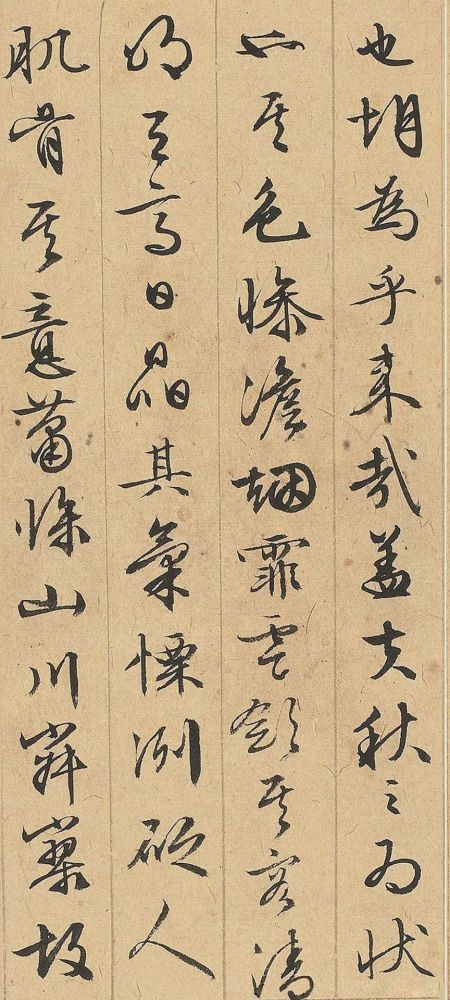 也胡為乎来哉盖夫秋之為状
也其色惨澹烟霏雲斂其容清
明天高日晶其氣慄冽砭人
肌骨其意蕭條山川寂寥故